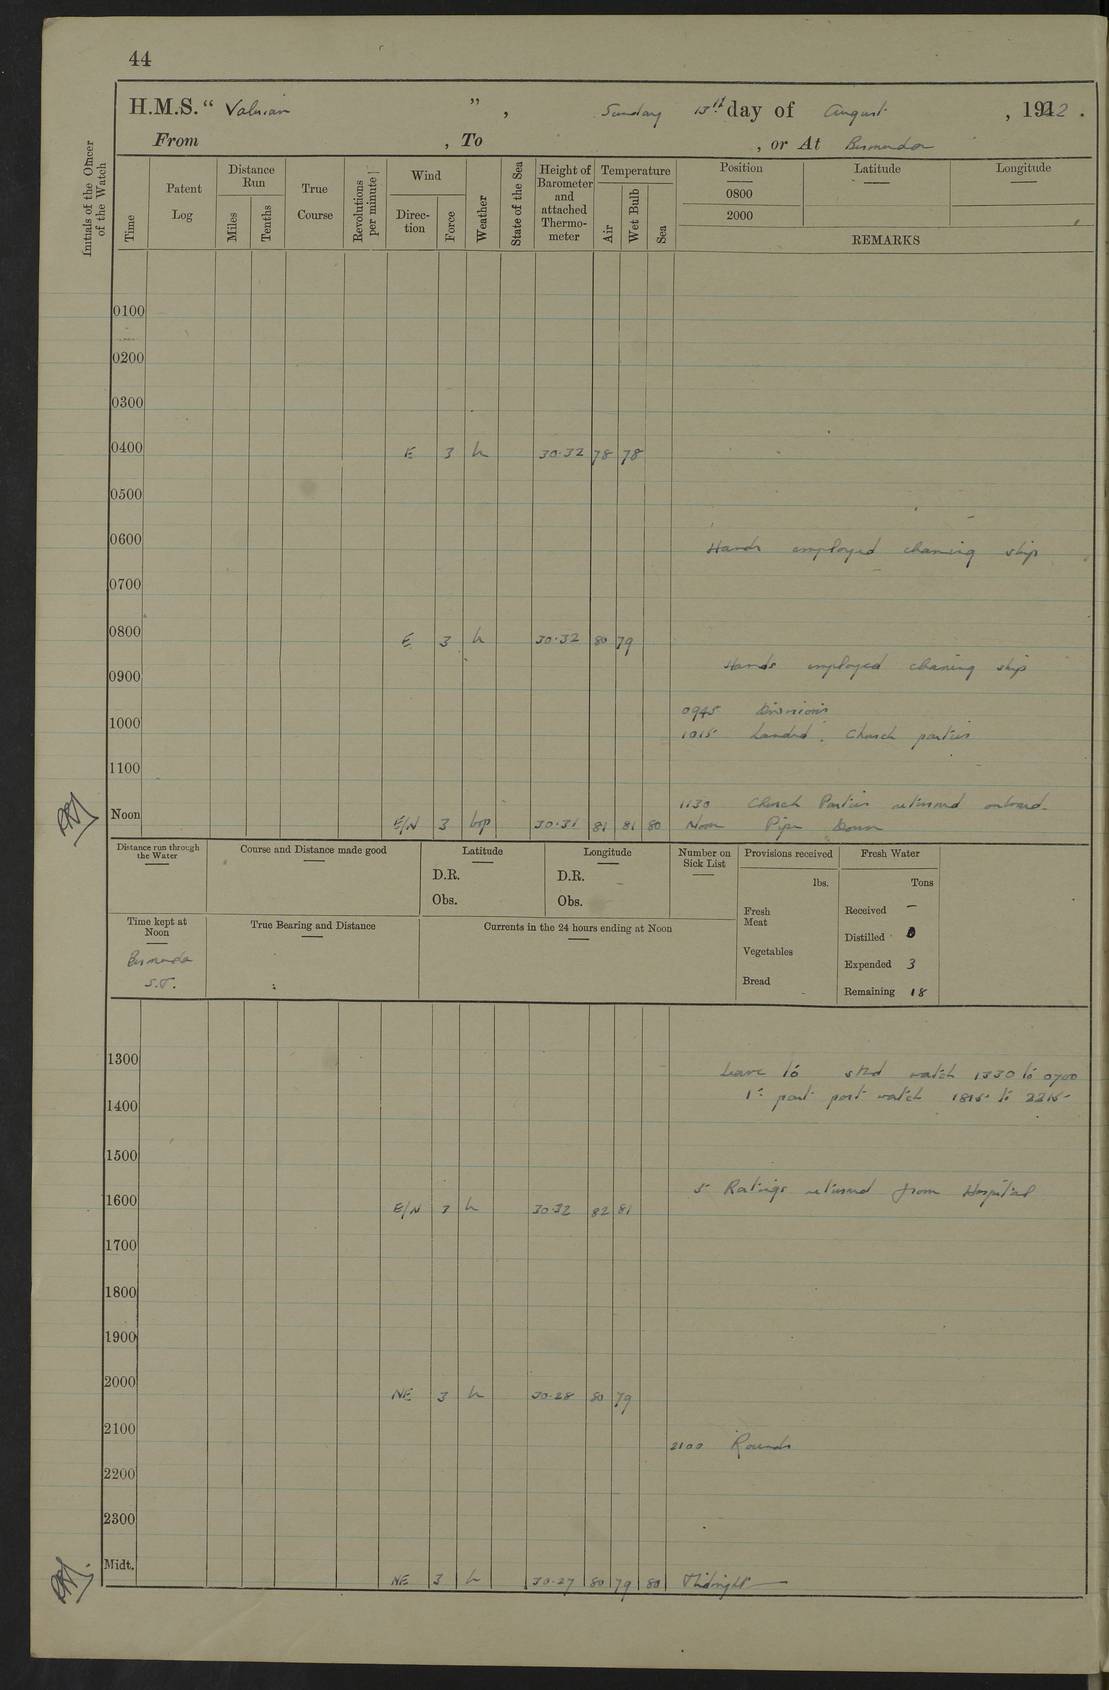 44
H.M.S. “ Valerian ” , Sunday 13th day of August , 1922 .
From , To , or At Bermuda
Initials of the Officer of the Watch
Time
Patent Log
Distance Run
Miles
Tenths
True Course
Revolutions per minute
Wind
Direc-tion
Force
Weather
State of the Sea
Height of Barometer and attached Thermo-meter
Temperature
Air
Wet Bulb
Sea
Position
0800
2000
Latitude
Longitude
REMARKS
0100
0200
0300
0400 E 3 30.32 78 78
0500
0600 Hands employed cleaning ship
0700
0800 E 3 30.32 80 79
Hands employed cleaning ship
0900
0945 Divisions
1000
1015 Landed Church parties
1100
1130 Church Parties returned onboard.
Noon E/N 3 bcp 30.31 81 81 80 Noon Pipe Down
Distance run through the Water
Course and Distance made good
Latitude
D.R.
Obs.
Longitude
D.R.
Obs.
Number on Sick List
Provisions received
lbs.
Fresh Meat
Vegetables
Bread
Fresh Water
Tons
Received –
Distilled 0
Expended 3
Remaining 18
Time kept at Noon
Bermuda
S.T.
True Bearing and Distance
Currents in the 24 hours ending at Noon
1300
Leave to stbd watch 1330 to 0700
1400 1st part port watch 1815 to 2215
1500
5 Ratings returned from Hospital
1600 E/N 3 30.32 82 81
1700
1800
1900
2000 NE 3 30.28 80 79
2100 2100 Rounds
2200
2300
Midt. NE 3 30.27 80 79 80 Midnight